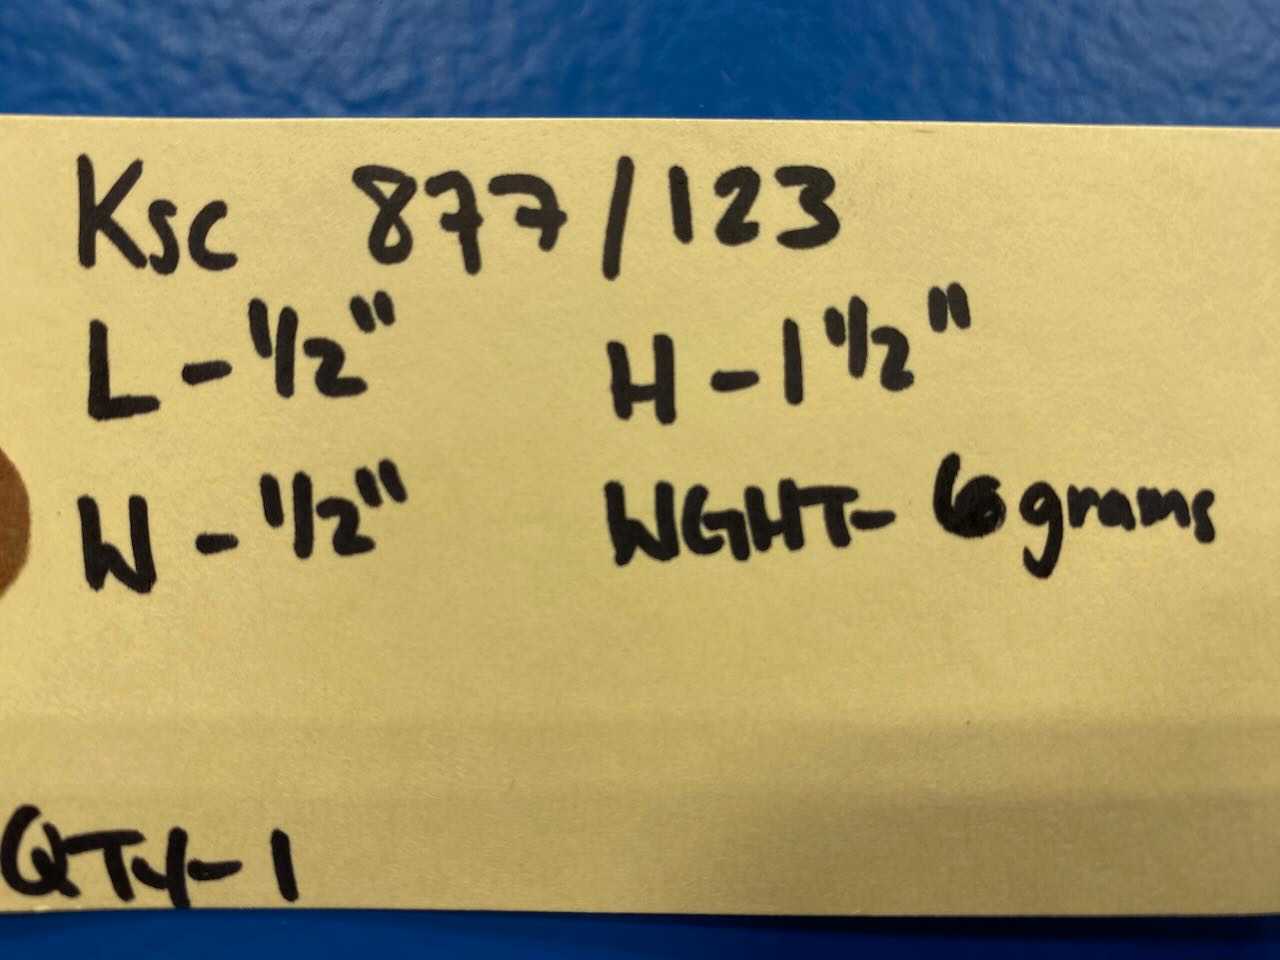 Ksc 877/123
L - 1/2" H - 1 1/2"
W - 1/2" WGHT- 6 grams
QTY-1